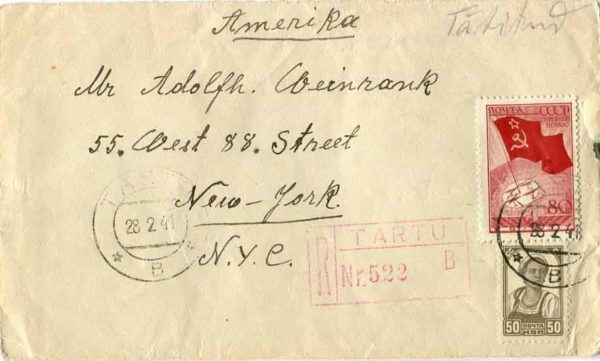 Amerika
Tähitud
Mr Adolfh. Weinrank
55. West 88. Street
New-York.
N.Y.C.
TARTU
28 2 41
B
R TARTU B
Nr. 522
ПОЧТА СССР
80
28 2 41
50 КОП 50